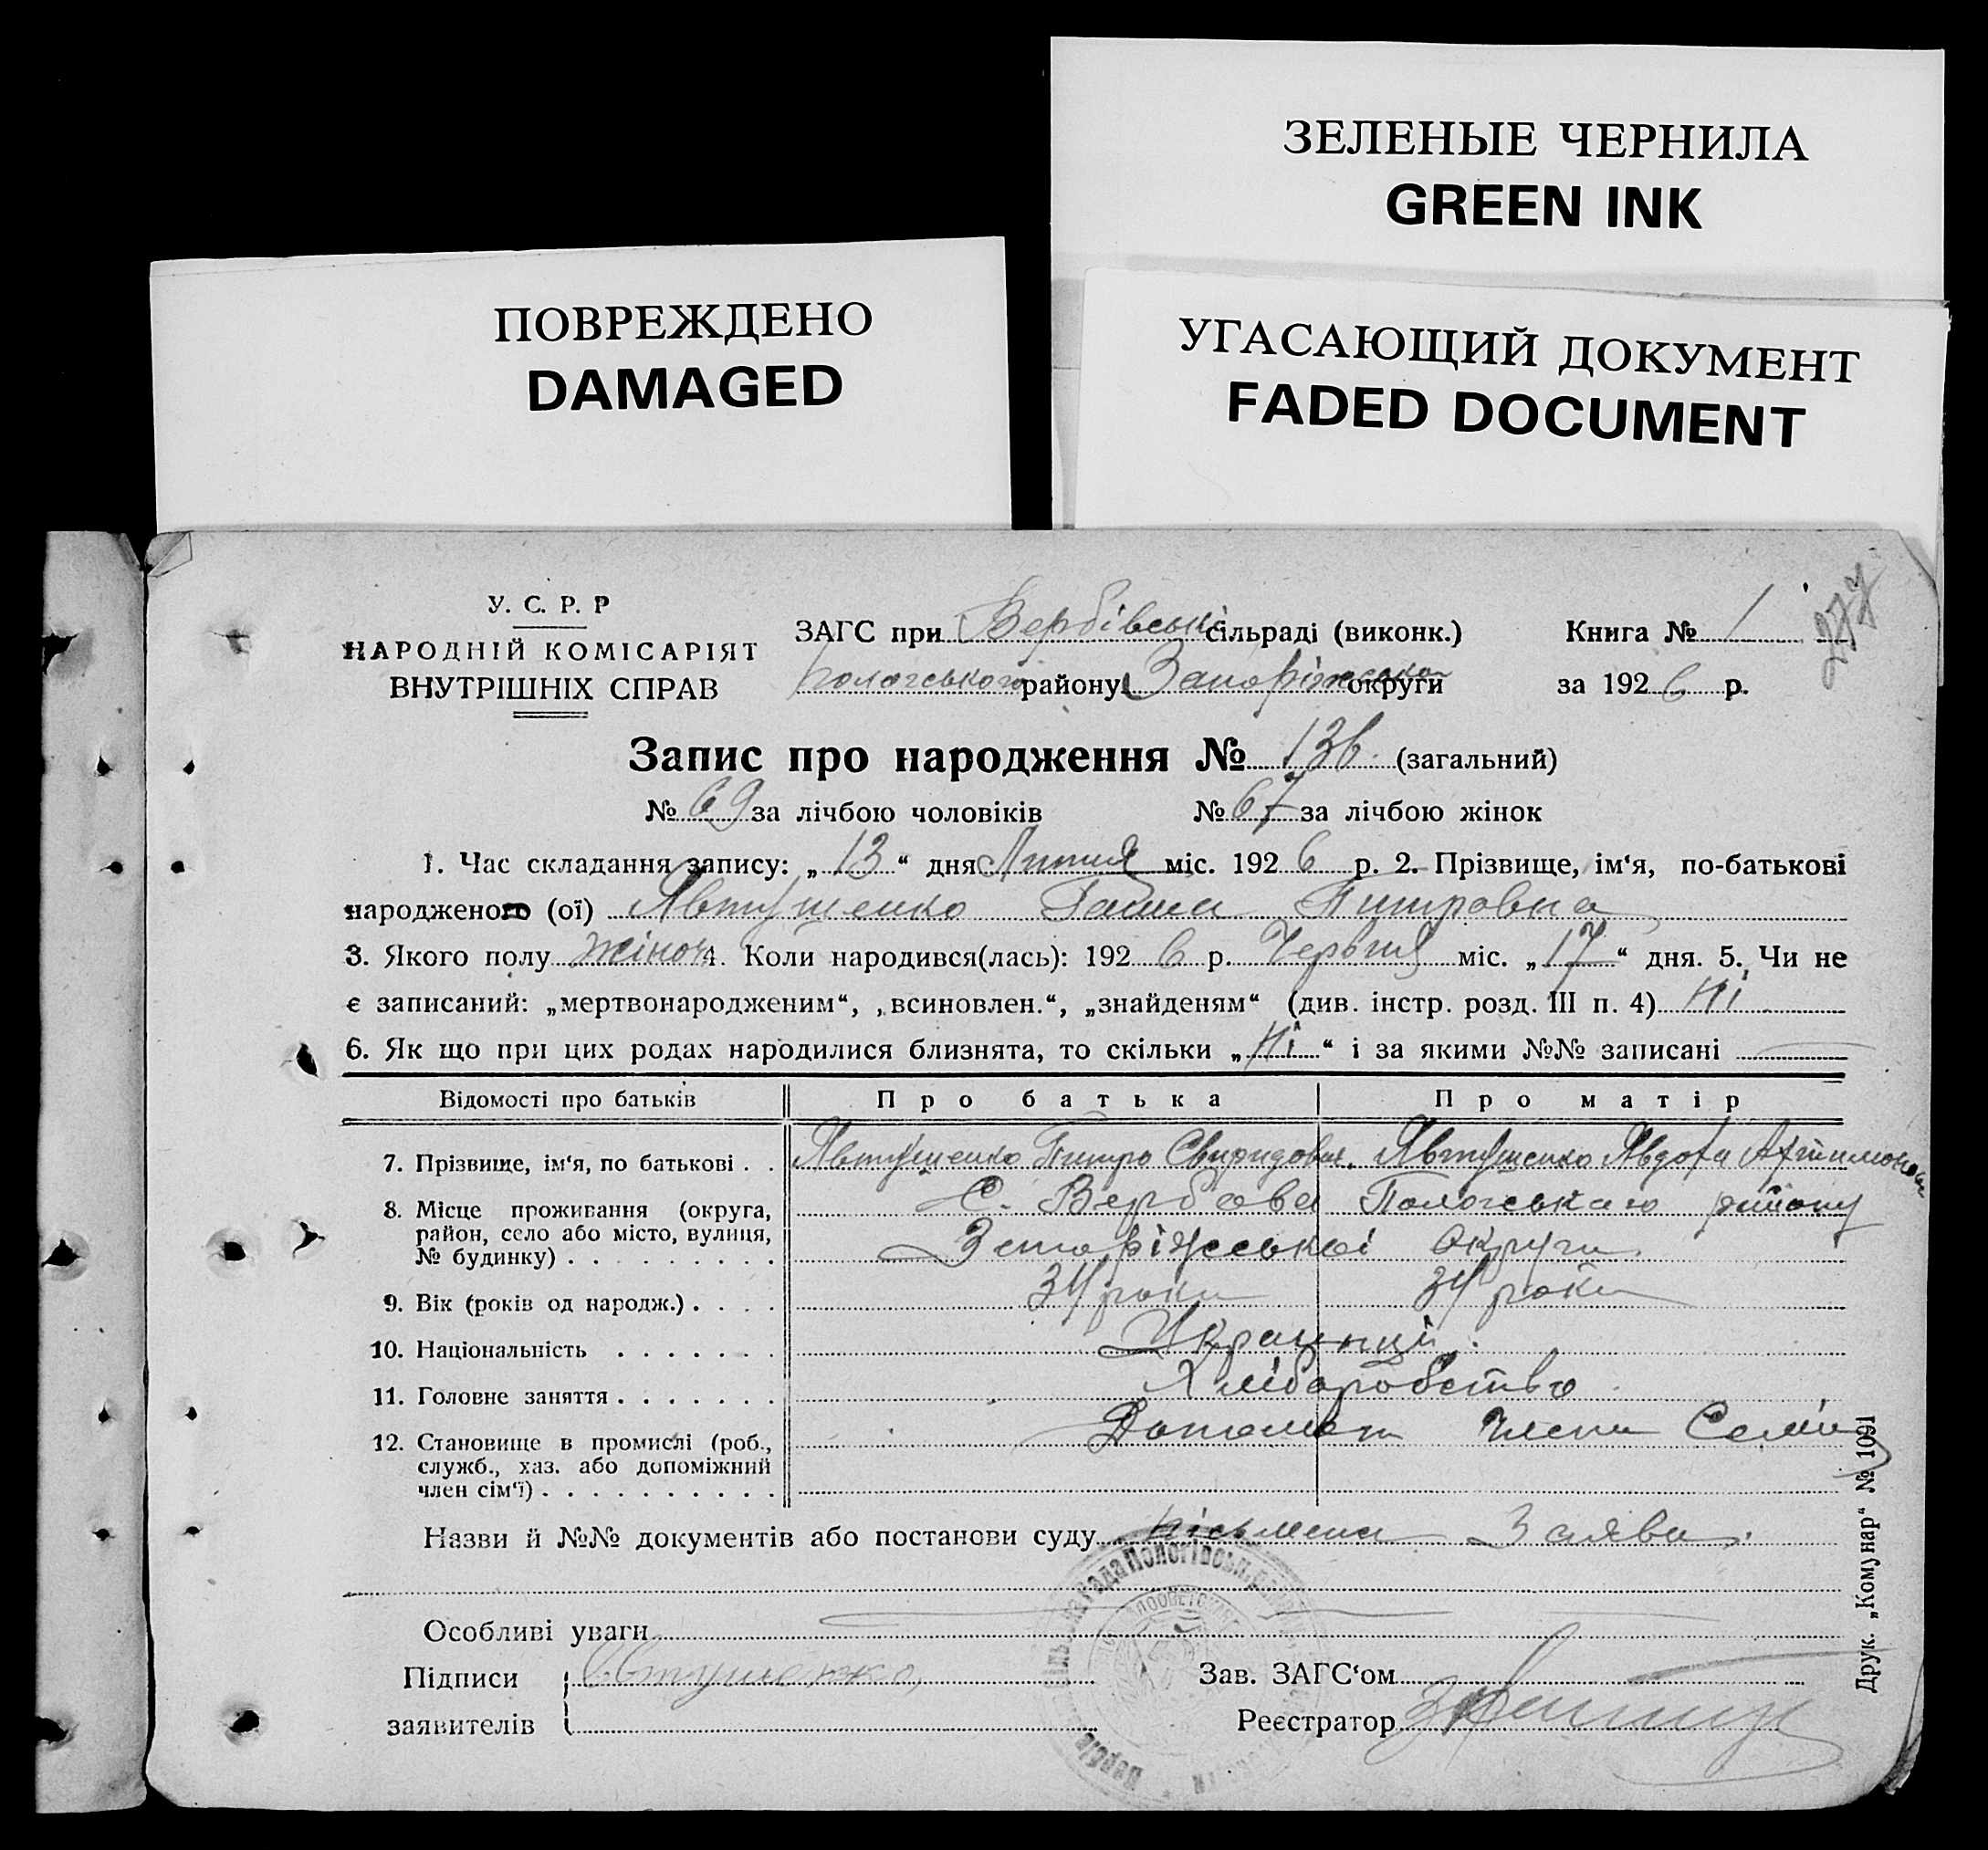 ЗЕЛЕНЫЕ ЧЕРНИЛА
GREEN INK
ПОВРЕЖДЕНО
DAMAGED
УГАСАЮЩИЙ ДОКУМЕНТ
FADED DOCUMENT
277
У. С. Р. Р
НАРОДНІЙ КОМІСАРІЯТ
ВНУТРІШНІХ СПРАВ
ЗАГС при Вербівське сільраді (виконк.) Книга № 1
Пологського району Запоріжської округи за 1926 р.
Запис про народження № 136. (загальний)
№ 69 за лічбою чоловіків № 67 за лічбою жінок
1. Час складання запису: „13“ дня Липня міс. 1926 р. 2. Прізвище, ім‘я, по-батькові
народженого (ої) Явтушенко Галина Питровна
3. Якого полу жіноч 4. Коли народився(лась): 1926 р. Червня міс. „17“ дня. 5. Чи не
є записаний: „мертвонародженим“, „всиновлен.“, „знайденям“ (див. інстр. розд. III п. 4) Ні
6. Як що при цих родах народилися близнята, то скільки „Ні“ і за якими №№ записані
Відомості про батьків Про батька Про матір
7. Прізвище, ім‘я, по батькові . . Явтушенко Питро Свиридович. Явтушенко Явдоха
8. Місце проживання (округа, район, село або місто, вулиця, № будинку) . . . . . . . . . С. Вербова Пологського району
Запоріжської Округи.
9. Вік (років од народж.) . . . . 34 роки 34 роки
10. Національність . . . . . . . Українці.
11. Головне заняття . . . . . . . Хліборобство
12. Становище в промислі (роб., служб., хаз. або допоміжний член сім‘ї) . . . . . . . . . . Члени Семїи
Назви й №№ документів або постанови суду письмена Заява.
Особливі уваги
Підписи Явтушенко,
заявителів
Зав. ЗАГС‘ом
Реєстратор
Друк. „Комунар“ № 1091